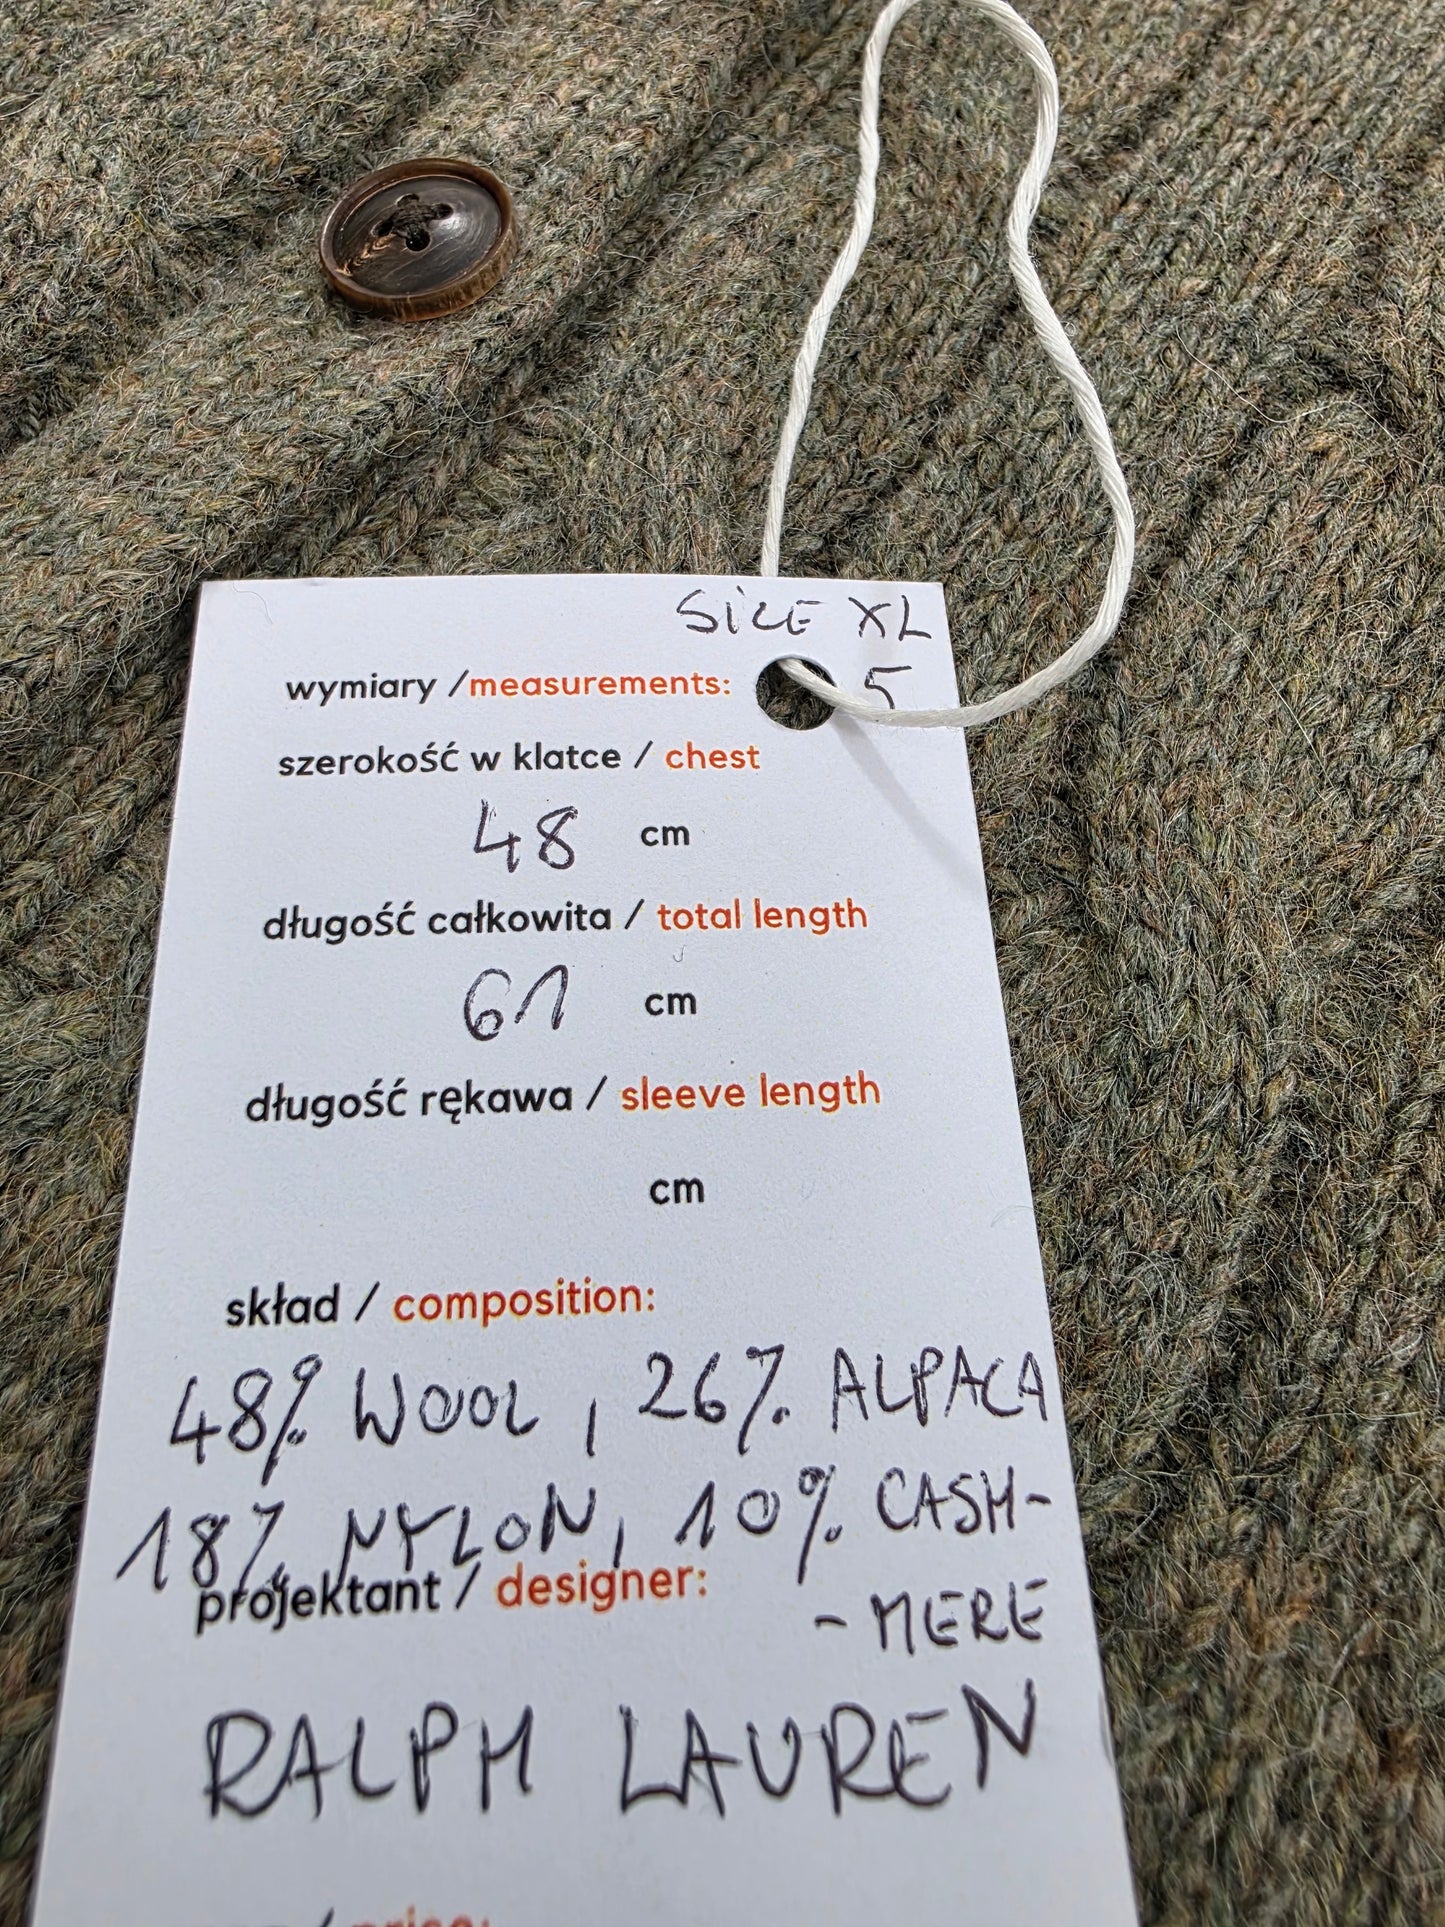 SIZE XL
wymiary /measurements: 5
szerokość w klatce / chest
48 cm
długość całkowita / total length
61 cm
długość rękawa / sleeve length
cm
skład / composition:
48% WOOL, 26% ALPACA
18% NYLON, 10% CASH-
-MERE
projektant / designer:
RALPH LAUREN
/ price: